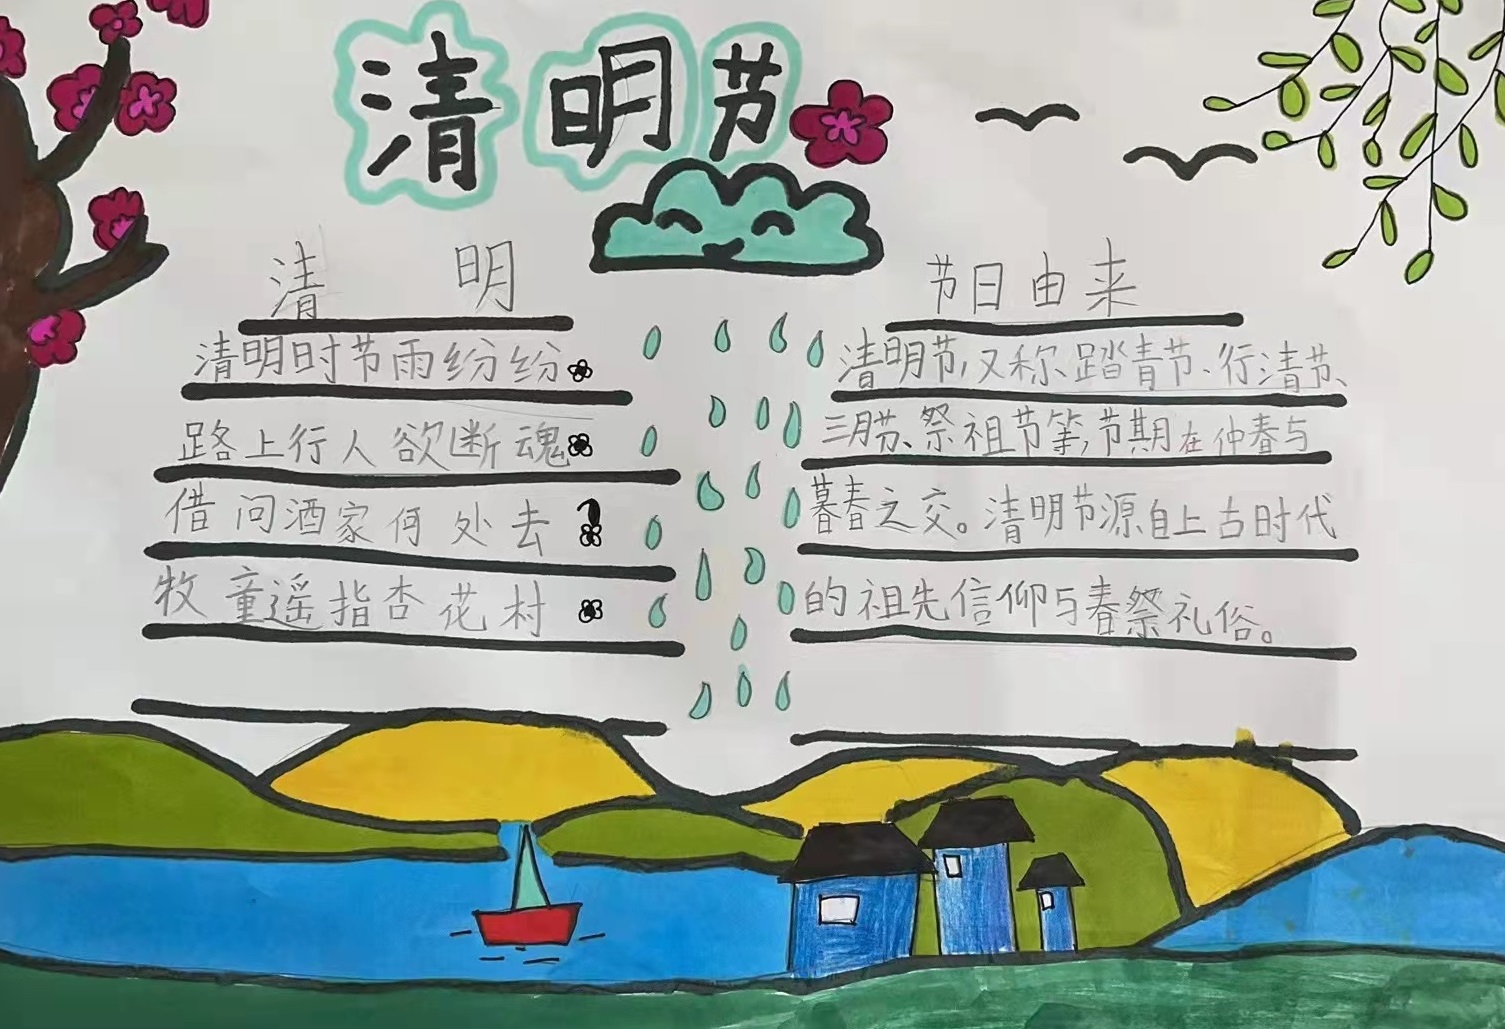 清明节
清 明
清明时节雨纷纷
路上行人欲断魂
借问酒家何处去
牧童遥指杏花村
节日由来
清明节,又称踏青节、行清节、
三月节、祭祖节等,节期在仲春与
暮春之交。清明节源自上古时代
的祖先信仰与春祭礼俗。